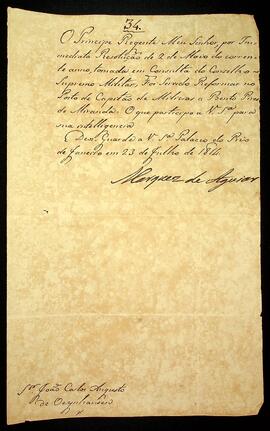 34.
O Principe Regente Meu Senhor, por Im-
mediata Resolução de 2 de Maio do corren-
te anno, tomada em Consulta do Conselho
Supremo Militar, Foi Servido Reformar no
Posto de Capitão de Milicias a Bento Pires
de Miranda. O que participo a V. Sª para
sua intelligencia
Deos Guarde a V. Sª Palacio do Rio
de Janeiro em 23 de Julho de 1814.
Marquez de Aguiar
Snr. João Carlos Augusto
de Oeynhausen